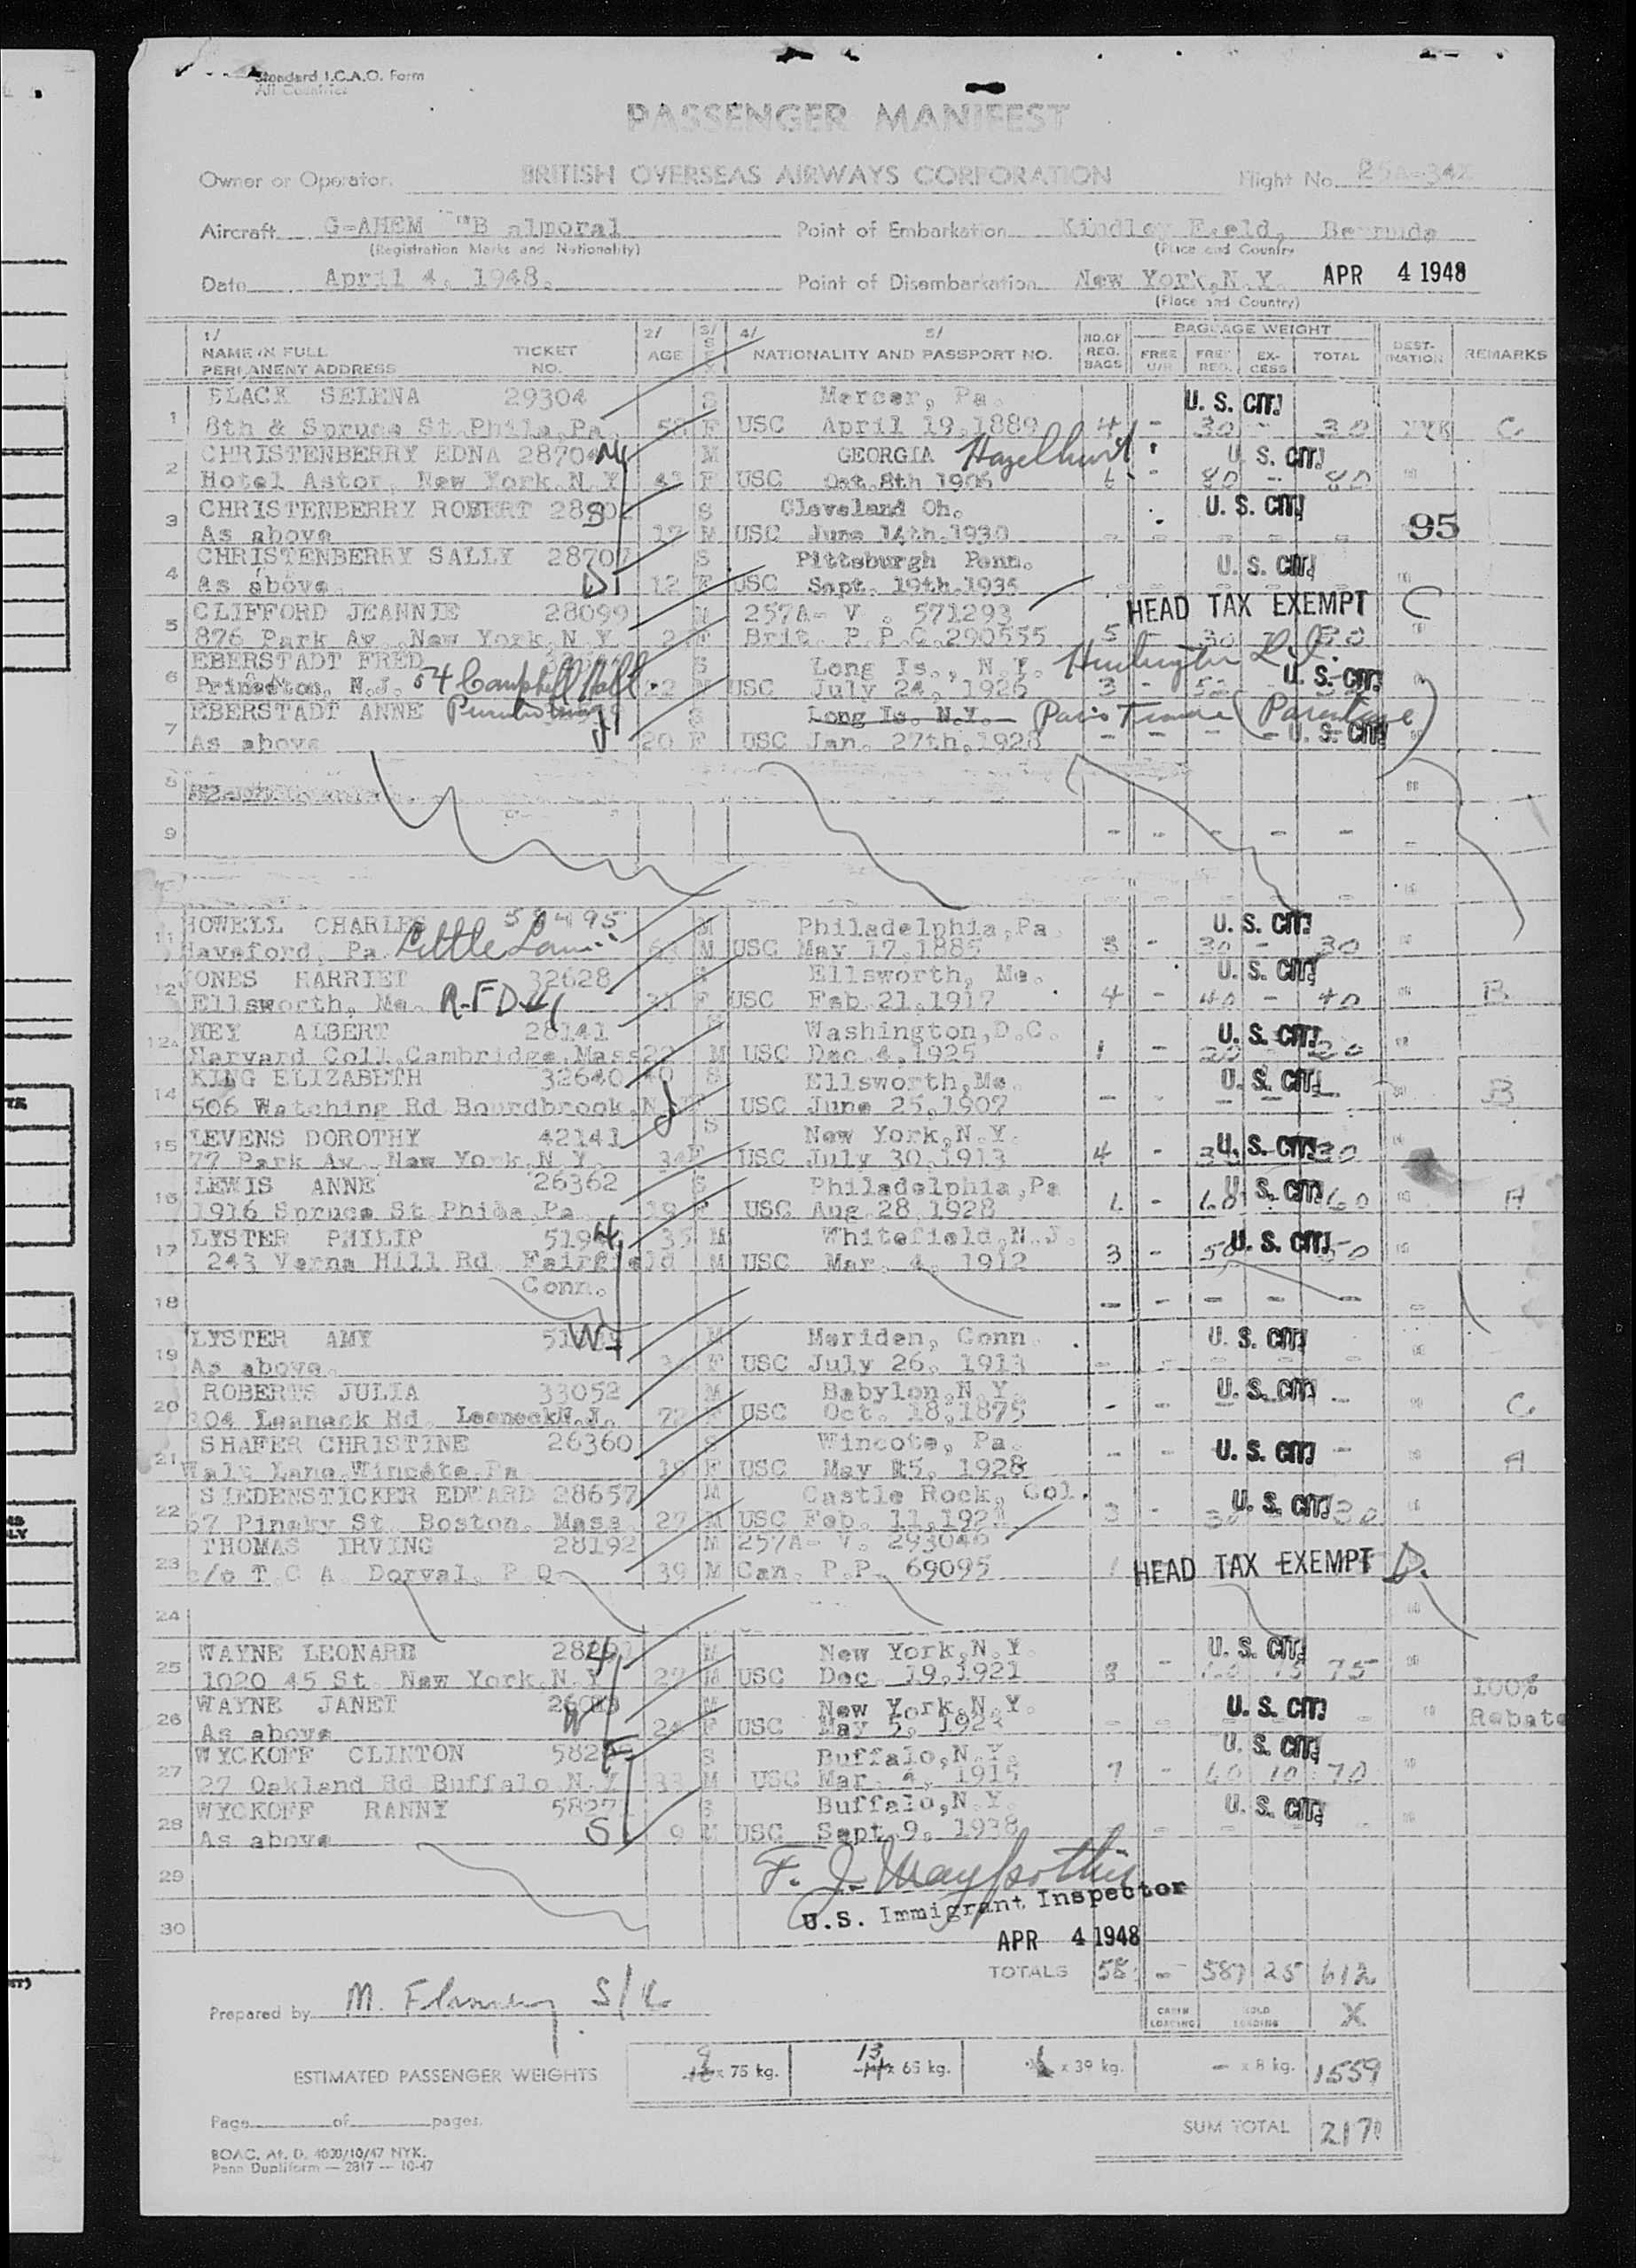 Standard I.C.A.O. Form
All Countries
PASSENGER MANIFEST
Owner or Operator. BRITISH OVERSEAS AIRWAYS CORPORATION Flight No.
Aircraft G-AHEM "B almoral Point of Embarkation Kindley Field, Bermuda
(Registration Marks and Nationality) (Place and Country
Date April 4, 1948. Point of Disembarkation New York,N.Y. APR 4 1948
(Place and Country)
1/ 2/ 3/ 4/ 5/ NO.OF BAGGAGE WEIGHT
NAME IN FULL TICKET AGE SEX NATIONALITY AND PASSPORT NO. REG. FREE FREE EX- TOTAL DEST- REMARKS
PERMANENT ADDRESS NO. BAGS U/R REG. CESS INATION
BLACK SELENA 29304 S Mercer, Pa. U. S. CIT.
1 8th & Spruce St.Phila,Pa. 58 F USC April 19,1889 4 - 30 - 30 NYK C
CHRISTENBERRY EDNA M GEORGIA Hazelhurst U. S. CIT.
2 Hotel Astor, New York,N.Y 41 F USC Oct.8th 1906 6 - 80 - 80 "
CHRISTENBERRY ROBERT S Cleveland Oh. U. S. CIT.
3 As above 17 M USC June 14th,1930 - - - - - 95
CHRISTENBERRY SALLY 28707 S Pittsburgh Penn. U. S. CIT.
4 As above. 12 F USC Sept. 19th,1935 - - - - - "
CLIFFORD JEANNIE 28099 257A- V . 571293 HEAD TAX EXEMPT C
5 876 Park Av.,New York,N.Y. F Brit. P.P.C.290555 5 - 30 30 "
EBERSTADT FRED S Long Is., N.Y. Huntington L.I.
6 Princeton, N.J. 54 Campbell Hall 22 M USC July 24, 1926 3 - 52 U. S. CIT.
EBERSTADT ANNE S Long Is. N.Y. Paris France (Parentage)
7 As above 20 F USC Jan. 27th,1928 - - - - U. S. CIT. "
8 "
9 - - - - - "
HOWELL CHARLES 58495 M Philadelphia,Pa. U. S. CIT.
11 Haveford, Pa. Little Lane 63 M USC May 17,1885 3 - 30 - 30 "
JONES HARRIET 32628 Ellsworth, Me. U. S. CIT.
12 Ellsworth, Me. R.F.D. 4 31 F USC Feb.21,1917 4 - 40 - 40 " B
ALBERT 28141 S Washington,D.C. U. S. CIT.
12A Harvard Coll.Cambridge,Mass22 M USC Dec.4,1925 1 - 20 - 20 "
KING ELIZABETH 32640 40 S Ellsworth,Me. U. S. CIT.
14 506 Watching Rd Boundbrook,N.J F USC June 25,1907 - - - - - " B
LEVENS DOROTHY 42141 S New York,N.Y. U. S. CIT.
15 77 Park Av. New York,N.Y. 34F USC July 30,1913 4 - 30 30 "
LEWIS ANNE 26362 S Philadelphia,Pa U. S. CIT.
16 1916 Spruce St Phila,Pa 19 F USC Aug 28 1928 6 - 60 60 " A
LYSTER PHILIP 35 M Whitefield,N.J. U. S. CIT.
17 243 Verna Hill Rd Fairfield M USC Mar. 4, 1912 3 - 50 - 50 "
Conn.
18 - - - - - -
LYSTER AMY M Meriden, Conn. U. S. CIT.
19 As above. F USC July 26, 1913 - - - - - "
ROBERTS JULIA 33052 M Babylon,N.Y. U. S. CIT.
20 304 Leaneck Rd. LeaneckN.J. 72 F USC Oct. 18,1875 - - - - - " C
SHAFER CHRISTINE 26360 S Wincote, Pa. U. S. CIT.
21 Walt Lane,Wincote,Pa 19 F USC May 15, 1928 - - - - - A
SIEDENSTICKER EDWARD 28657 M Castle Rock, Col. U. S. CIT.
22 67 Pinsky St. Boston, Mass. 27 M USC Feb. 11,1921 3 - 30 30 "
THOMAS IRVING 28192 M 257A- V. 293046
23 c/o T C A Dorval, P Q 39 M Can. P.P. 69095 1 HEAD TAX EXEMPT D.
24 "
WAYNE LEONARD M New York,N.Y. U. S. CIT.
25 1020 45 St. New York,N.Y. 27 M USC Dec. 19,1921 8 - 60 15 75 "
WAYNE JANET M New York,N.Y. U. S. CIT. 100%
26 As above 24 F USC May 5, 1923 - - " Rebate
WYCKOFF CLINTON S Buffalo,N.Y. U. S. CIT.
27 27 Oakland Rd Buffalo N.Y 33 M USC Mar. 4, 1915 7 - 60 10 70 "
WYCKOFF RANNY S Buffalo,N.Y. U. S. CIT.
28 As above 9 M USC Sept.9, 1938 - - - - - "
29
U.S. Immigrant Inspector
30 APR 4 1948
TOTALS 58 - 587 25 612
Prepared by
CABIN LOADING HOLD LOADING X
ESTIMATED PASSENGER WEIGHTS 9 x 75 kg. 13 x 65 kg. 1 x 39 kg. - x 8 kg. 1559
Page of pages.
SUM TOTAL 2171
BOAC. At. D. 4000/10/47 NYK.
Penn Dupliform — 2817 — 10-47